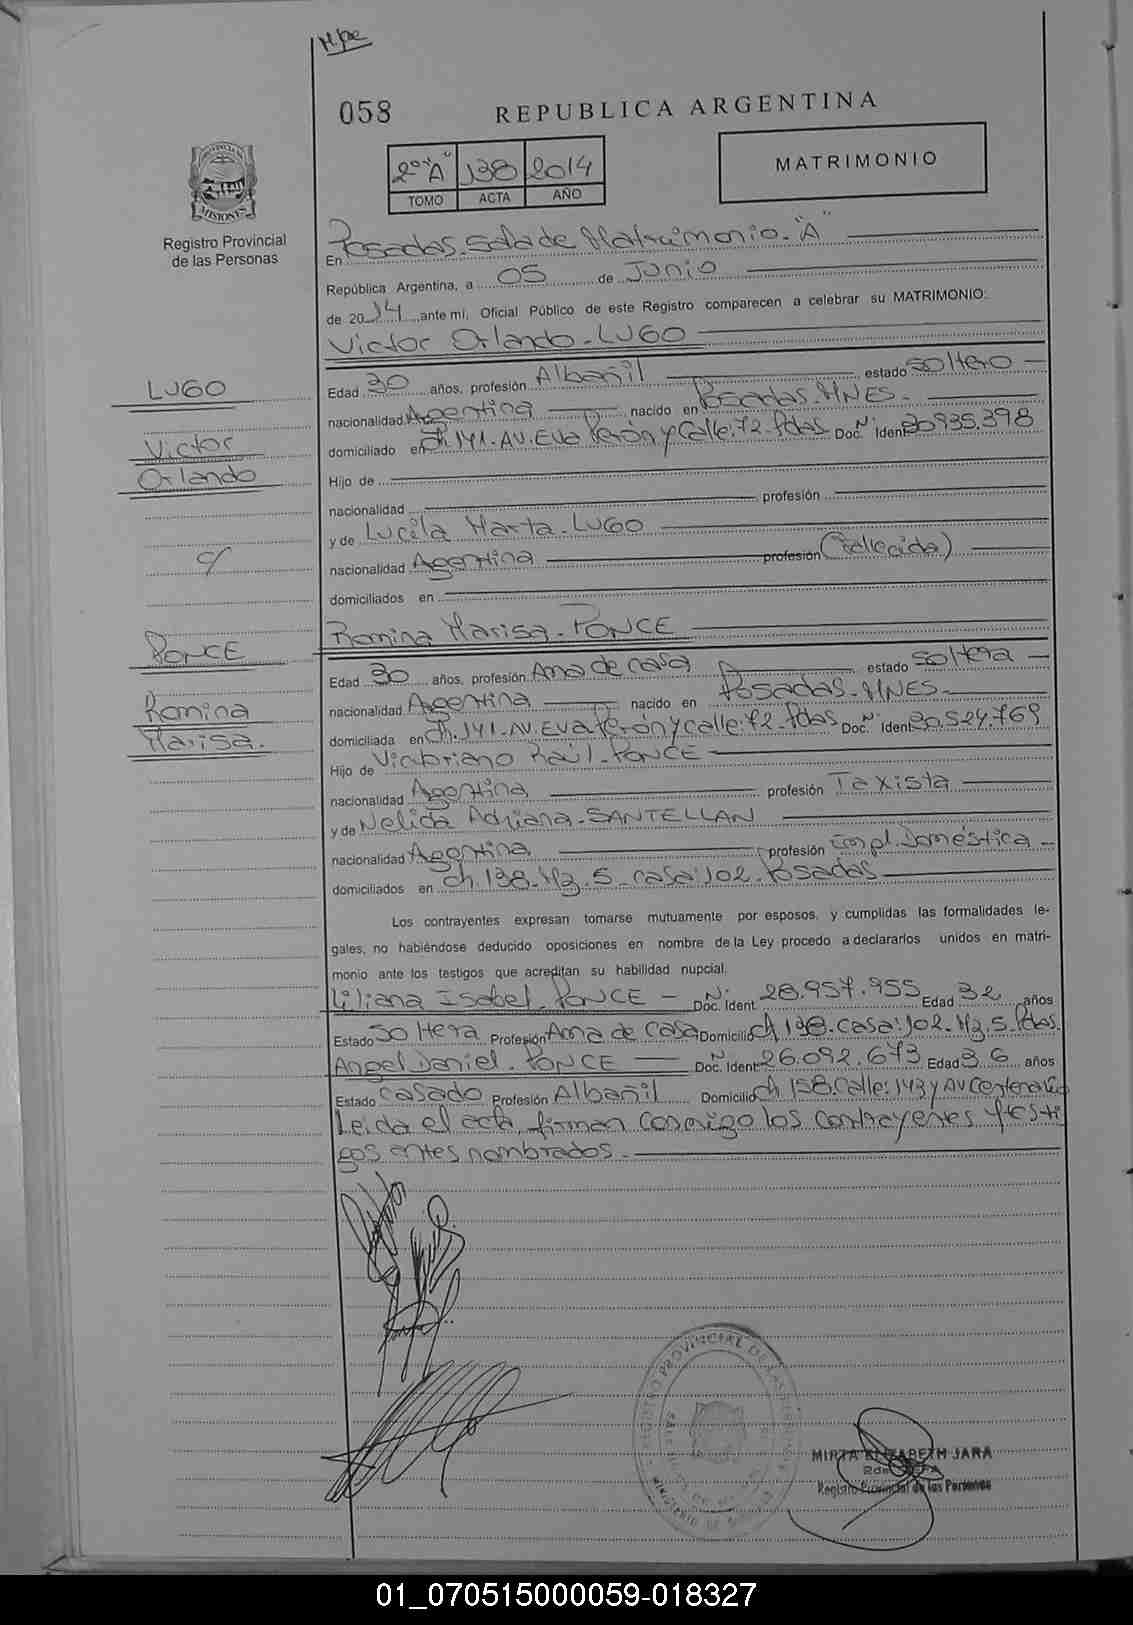 058
REPUBLICA ARGENTINA
2º "A" 138 2014
TOMO ACTA AÑO
MATRIMONIO
PROVINCIA DE
MISIONES
Registro Provincial
de las Personas
En Posadas. Sala de Matrimonio. "A"
República Argentina, a 05 de Junio
de 2014 ante mí, Oficial Público de este Registro comparecen a celebrar su MATRIMONIO:
Victor Orlando. LUGO
LUGO
Victor
Orlando
c/
PONCE
Romina
Marisa.
Edad 30 años, profesión Albañil estado soltero
nacionalidad Argentina nacido en Posadas. MNES.
domiciliado en Ch. 141. AV. Eva Perón y Calle: 72. Pdas Doc. Nº Ident 30.935.398
Hijo de
nacionalidad profesión
y de Lucila Marta. LUGO
nacionalidad Argentina profesión (Fallecida)
domiciliados en
Romina Marisa. PONCE
Edad 30 años, profesión Ama de casa estado soltera
nacionalidad Argentina nacido en Posadas. MNES.
domiciliada en Ch. 141. AV. Eva Perón y calle: 72. Pdas Doc. Nº Ident 30.524.769
Hijo de Raúl. PONCE
nacionalidad Argentina profesión Taxista
y de Nelida Adriana. SANTELLAN
nacionalidad Argentina profesión Empl. Doméstica
domiciliados en ch 138. Mz. 5. casa: 102. Posadas
Los contrayentes expresan tomarse mutuamente por esposos, y cumplidas las formalidades le-
gales, no habiéndose deducido oposiciones en nombre de la Ley procedo a declararlos unidos en matri-
monio ante los testigos que acreditan su habilidad nupcial.
Liliana Isabel. PONCE Doc. Nº Ident 28.957.955 Edad 32 años
Estado Soltera Profesión Ama de Casa Domicilio ch 138. casa: 102. Mz. 5. Pdas.
Angel Daniel. PONCE Doc. Nº Ident 26.092.673 Edad 36 años
Estado casado Profesión Albañil Domicilio ch 158. Calle: 143 y AV Centenario
Leida el acta, firman conmigo los contrayentes y testi
gos antes nombrados.
MIRTA ELIZABETH JARA
Registro Provincial de las Personas
01_070515000059-018327